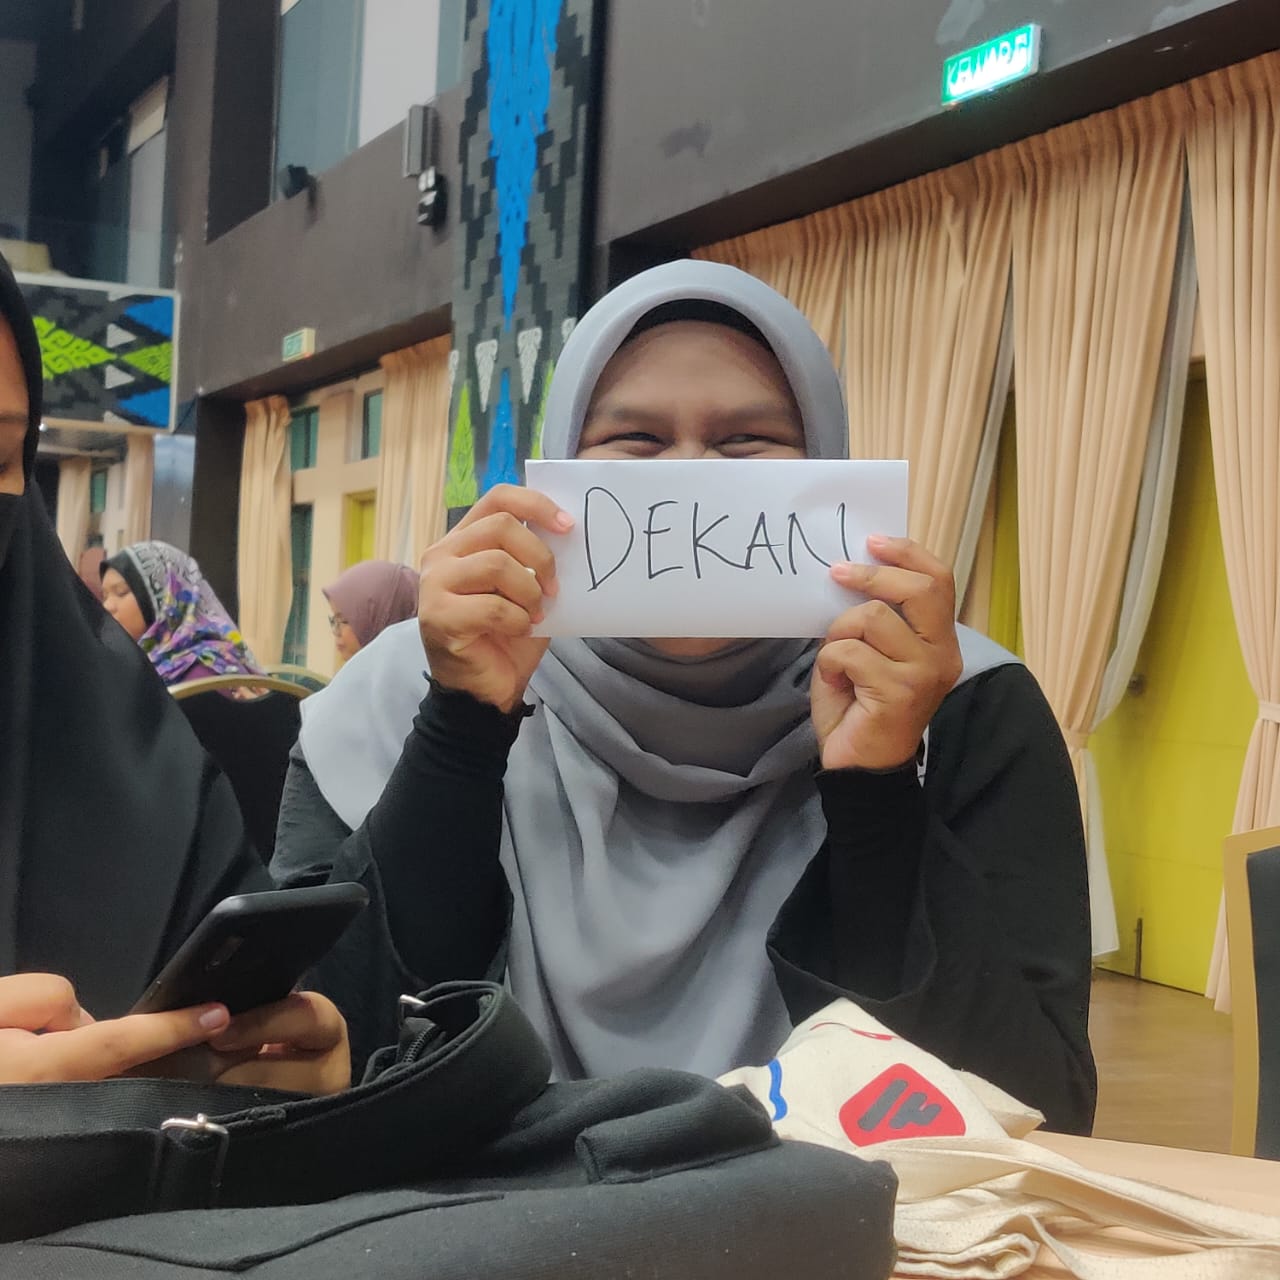 KELUAR
DEKAN